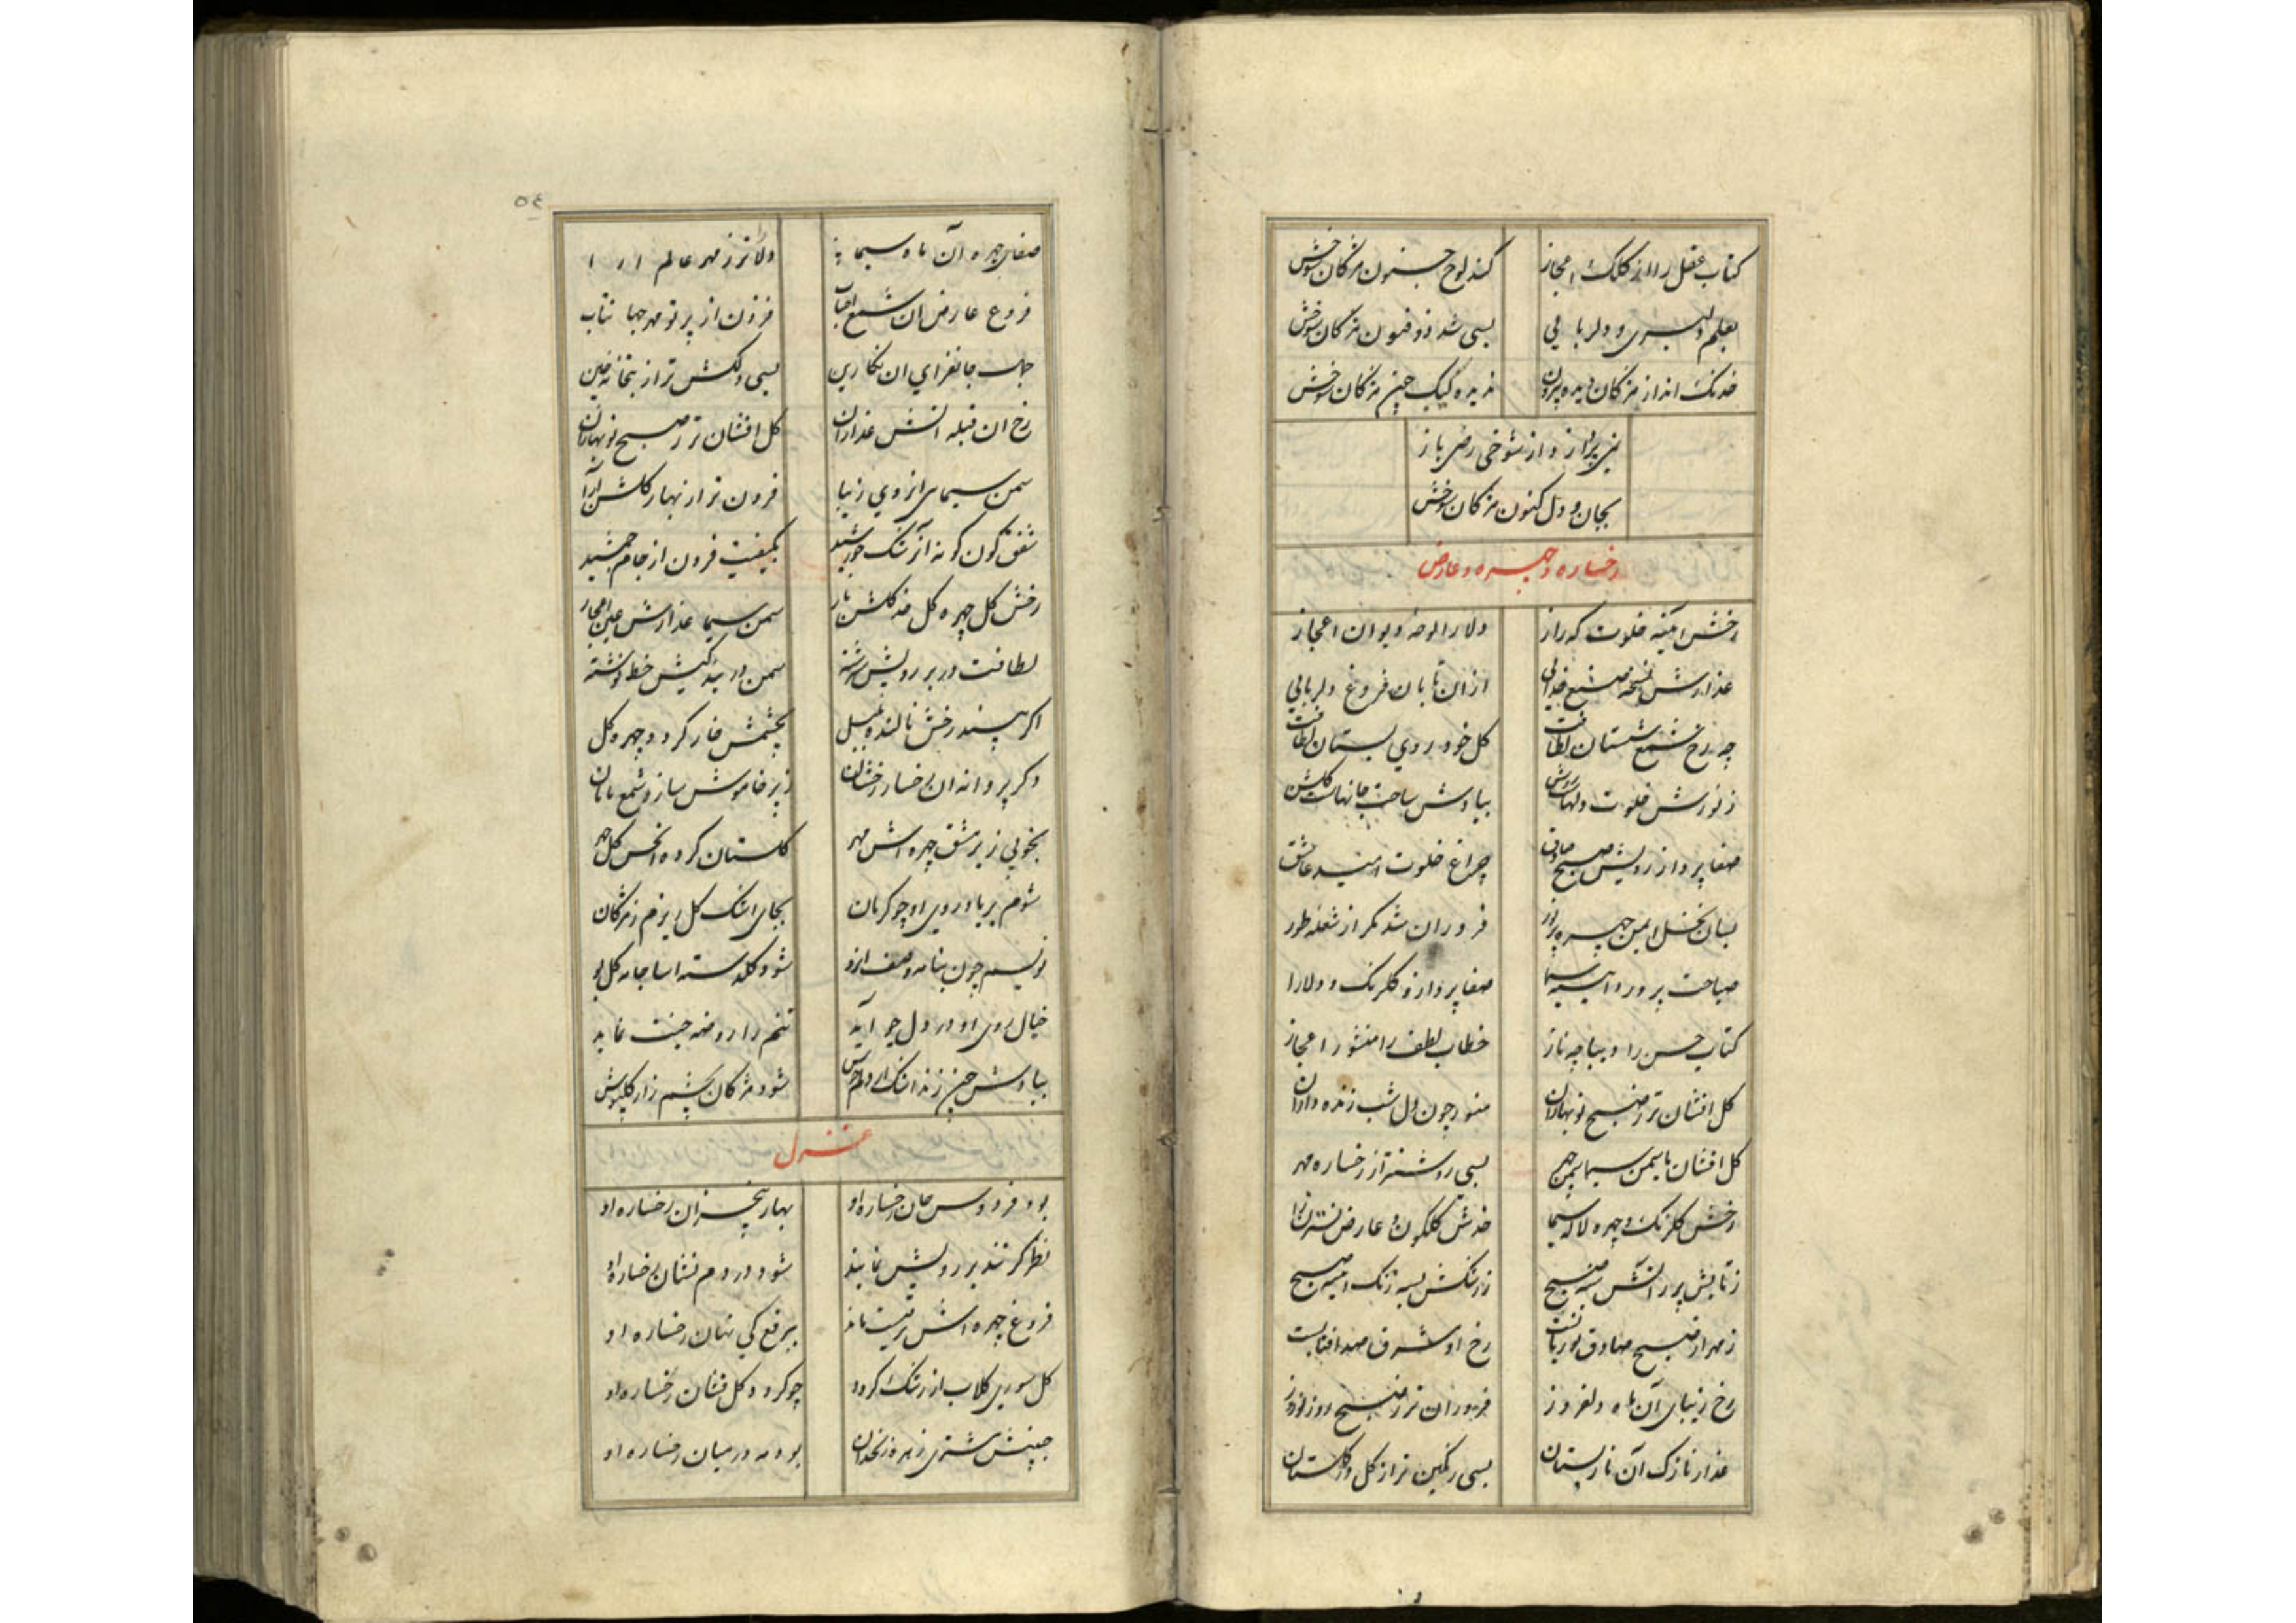 کتاب عقل را از کلک اعجاز کند لوح جنون مژکان شوخش
بعلم دلبری و دلربایی بسی شد ذو فنون مژکان شوخش
خدنک انداز مژکان دیده پرون ندیده کیک چین مژکان شوخش
واز شوخی رضی باز
بجان و دل کنون مژکان شوخش
رخساره و چهره و عارض
رخش آینه خلوت که راز دلارا لوحه دیوان اعجاز
عذارش نسخه صنع خدایی ازان تابان فروغ دلربایی
چه رخ شمع شبستان لطافت کل خود روی بستان لطافت
ز نورش خلوت دلهاست روشن بیادش ساحت جانهاست کلشن
صفا پرداز رویش صبح صادق چراغ خلوت امید عاشق
بسان نخل ایمن چهره پر نور فروزان شد مکر از شعله طور
صباحت پرور و آیینه سیما صفا پرداز و کلرنک و دلارا
کتاب حسن را دیباچه ناز خطاب لطف را منشور اعجاز
کل افشان تر ز صبح نوبهاران منور چون دل شب زنده داران
کل افشان یاسمین سیما سمن چهر بسی روشنتر از رخساره مهر
رخش کلرنک و چهره لاله سیما خدش کلکون و عارض نسترن زا
ز تابش پر ز آتش سینه صبح ز رنکش بسته زنک آینه صبح
ز مهر او صبح صادق نور یابست رخ او مشرق صد آفتابست
رخ زیبای آن ماه دلفروز فروزان تر ز صبح روز نوروز
عذار نازک آن نارپستان بسی رنکین تر از کل در کلستان
٥٤
صفای چهره آن ماه سیما دلاتر ز مهر عالم ارا
فروغ عارض آن شمع احباب فزون از پرتو مهر جهانتاب
جمال جانفزای آن نکارین بسی دلکش تر از بتخانه چین
رخ آن قبله آتش عذاران کل افشان تر ز صبح نوبهاران
سمن سیمای از روی زیبا فزون تر از بهار کلشن آرا
شفق کون کونه آن رشک خورشید بکیفیت فزون از جام جمشید
رخش کل چهره کل خد کلشن ناز سمن سیما عذارش عین اعجاز
لطافت در بر رویش سرشته سمن در بندکیش خط نوشته
اکر بیند رخش نالنده بلبل بچشمش خار کردد چهره کل
وکر پروانه آن رخسار رخشان زبر خاموش سازد شمع تابان
بخوبی زیر مشق چهره اش مهر کلستان کرده از عکس کل چهر
شوم بر یاد روی او چو کریان بجای اشک کل ریزم ز مژکان
نویسم چون بنامه وصف از او شود کلدسته اسا خامه کل بو
خیال روی او در دل چو آید تنم را روضه جنت نماید
بیادش چین زند اشک از دلم جوش شود مژکان چشم زار کلپوش
غزل
بود فردوس جان رخساره او بهار بیخزان رخساره او
نظر کر تند بر رویش نماید شود در دم نشان رخساره او
فروغ چهره اش رقیت ماند ببرقع کی نهان رخساره او
کل سوری کلاب از رشک کردد چو کردد کل فشان رخساره او
جبینش مشتری زهره زنخدان بود مه در میان رخساره او